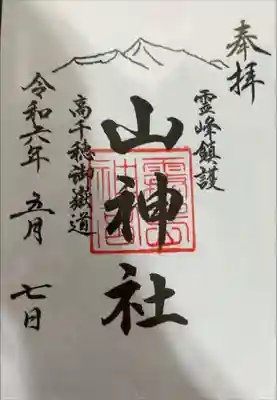 奉拝
霊峰鎮護
山神社
高千穂御嶽道
令和六年 五月 七日